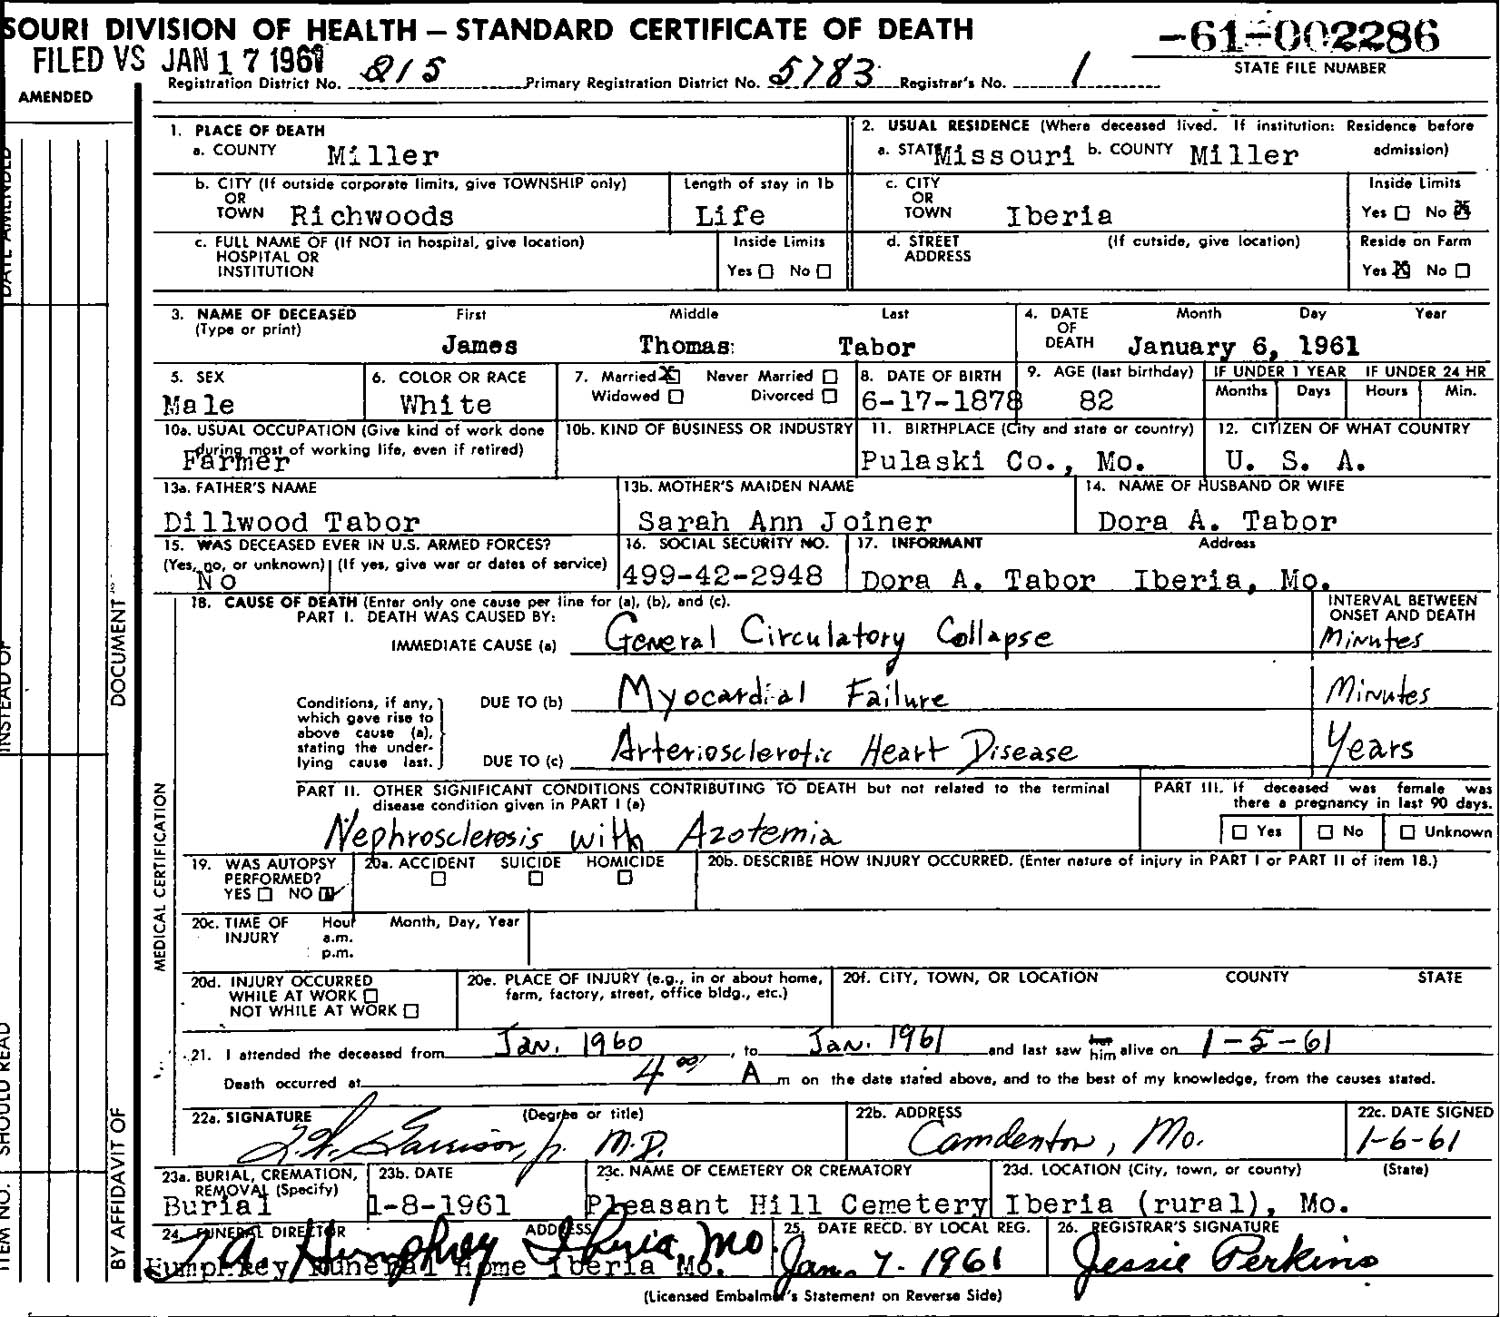 SOURI DIVISION OF HEALTH – STANDARD CERTIFICATE OF DEATH
-61-002286
STATE FILE NUMBER
FILED VS JAN 17 1961
Registration District No. 215 Primary Registration District No. 5783 Registrar's No. 1
AMENDED
DATE AMENDED
INSTEAD OF
SHOULD READ
ITEM NO.
DOCUMENT
BY AFFIDAVIT OF
1. PLACE OF DEATH
a. COUNTY Miller
2. USUAL RESIDENCE (Where deceased lived. If institution: Residence before admission)
a. STATE Missouri b. COUNTY Miller
b. CITY (If outside corporate limits, give TOWNSHIP only)
OR
TOWN Richwoods
Length of stay in 1b
Life
c. CITY
OR
TOWN Iberia
Inside Limits
Yes ☐ No ☒
c. FULL NAME OF (If NOT in hospital, give location)
HOSPITAL OR
INSTITUTION
Inside Limits
Yes ☐ No ☐
d. STREET
ADDRESS
(If outside, give location)
Reside on Farm
Yes ☒ No ☐
3. NAME OF DECEASED
(Type or print)
First Middle Last
James Thomas Tabor
4. DATE
OF
DEATH
Month Day Year
January 6, 1961
5. SEX
Male
6. COLOR OR RACE
White
7. Married ☒ Never Married ☐
Widowed ☐ Divorced ☐
8. DATE OF BIRTH
6-17-1878
9. AGE (last birthday)
82
IF UNDER 1 YEAR IF UNDER 24 HR
Months Days Hours Min.
10a. USUAL OCCUPATION (Give kind of work done
during most of working life, even if retired)
Farmer
10b. KIND OF BUSINESS OR INDUSTRY
11. BIRTHPLACE (City and state or country)
Pulaski Co., Mo.
12. CITIZEN OF WHAT COUNTRY
U. S. A.
13a. FATHER'S NAME
Dillwood Tabor
13b. MOTHER'S MAIDEN NAME
Sarah Ann Joiner
14. NAME OF HUSBAND OR WIFE
Dora A. Tabor
15. WAS DECEASED EVER IN U.S. ARMED FORCES?
(Yes, no, or unknown) (If yes, give war or dates of service)
No
16. SOCIAL SECURITY NO.
499-42-2948
17. INFORMANT Address
Dora A. Tabor Iberia, Mo.
MEDICAL CERTIFICATION
18. CAUSE OF DEATH (Enter only one cause per line for (a), (b), and (c).
PART I. DEATH WAS CAUSED BY:
INTERVAL BETWEEN
ONSET AND DEATH
IMMEDIATE CAUSE (a) General Circulatory Collapse Minutes
Conditions, if any,
which gave rise to
above cause (a),
stating the under-
lying cause last.
DUE TO (b) Myocardial Failure Minutes
DUE TO (c) Arteriosclerotic Heart Disease Years
PART II. OTHER SIGNIFICANT CONDITIONS CONTRIBUTING TO DEATH but not related to the terminal
disease condition given in PART I (a)
Nephrosclerosis with Azotemia
PART III. If deceased was female was
there a pregnancy in last 90 days.
☐ Yes ☐ No ☐ Unknown
19. WAS AUTOPSY
PERFORMED?
YES ☐ NO ☑
20a. ACCIDENT SUICIDE HOMICIDE
☐ ☐ ☐
20b. DESCRIBE HOW INJURY OCCURRED. (Enter nature of injury in PART I or PART II of item 18.)
20c. TIME OF
INJURY
Hour
a.m.
p.m.
Month, Day, Year
20d. INJURY OCCURRED
WHILE AT WORK ☐
NOT WHILE AT WORK ☐
20e. PLACE OF INJURY (e.g., in or about home,
farm, factory, street, office bldg., etc.)
20f. CITY, TOWN, OR LOCATION COUNTY STATE
21. I attended the deceased from Jan. 1960, to Jan. 1961 and last saw her him alive on 1-5-61
Death occurred at 4 00 A m on the date stated above, and to the best of my knowledge, from the causes stated.
22a. SIGNATURE (Degree or title)
Garrison, Jr. M.D.
22b. ADDRESS
Camdenton, Mo.
22c. DATE SIGNED
1-6-61
23a. BURIAL, CREMATION,
REMOVAL (Specify)
Burial
23b. DATE
1-8-1961
23c. NAME OF CEMETERY OR CREMATORY
Pleasant Hill Cemetery
23d. LOCATION (City, town, or county) (State)
Iberia (rural), Mo.
24. FUNERAL DIRECTOR ADDRESS
Humphrey Iberia, Mo.
Humphrey Funeral Home Iberia Mo.
25. DATE RECD. BY LOCAL REG.
Jan. 7. 1961
26. REGISTRAR'S SIGNATURE
Jessie Perkins
(Licensed Embalmer's Statement on Reverse Side)